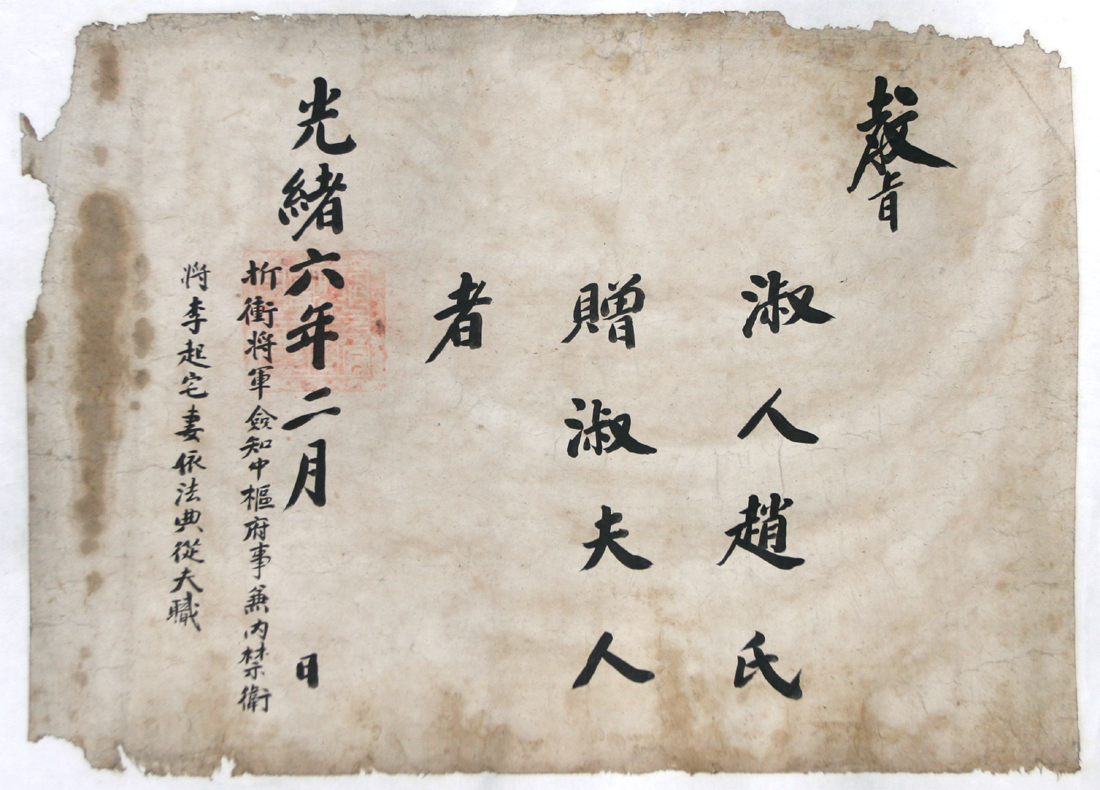 敎旨
淑人趙氏
贈淑夫人
者
光緖六年二月 日
折衝將軍僉知中樞府事兼內禁衛
將李起宅妻依法典從夫職